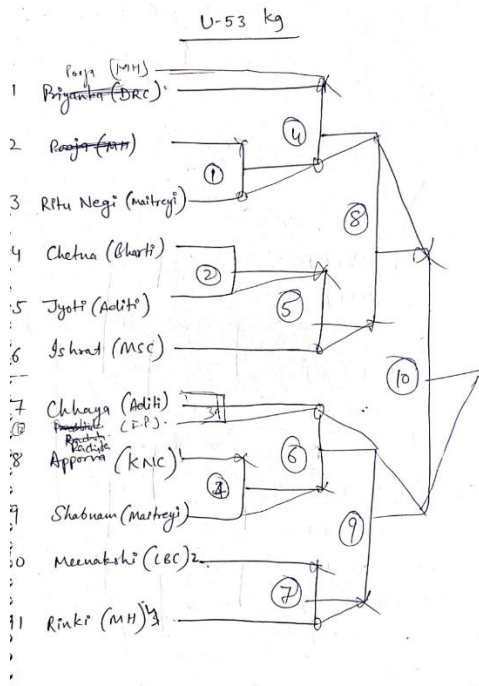 U-53 kg
Pooja (MH)
1 Priyanka (DRC)
2 Pooja (MH)
3 Ritu Negi (Maitreyi)
4 Chetna (Bharti)
5 Jyoti (Aditi)
6 Ishrat (MSC)
7 Chhaya (Aditi)
(I.P)
8 Apporva (KNC) 1
9 Shabnam (Maitreyi)
0 Meenakshi (LBC) 2
1 Rinki (MH)
1
2
4
5
6
7
8
9
10